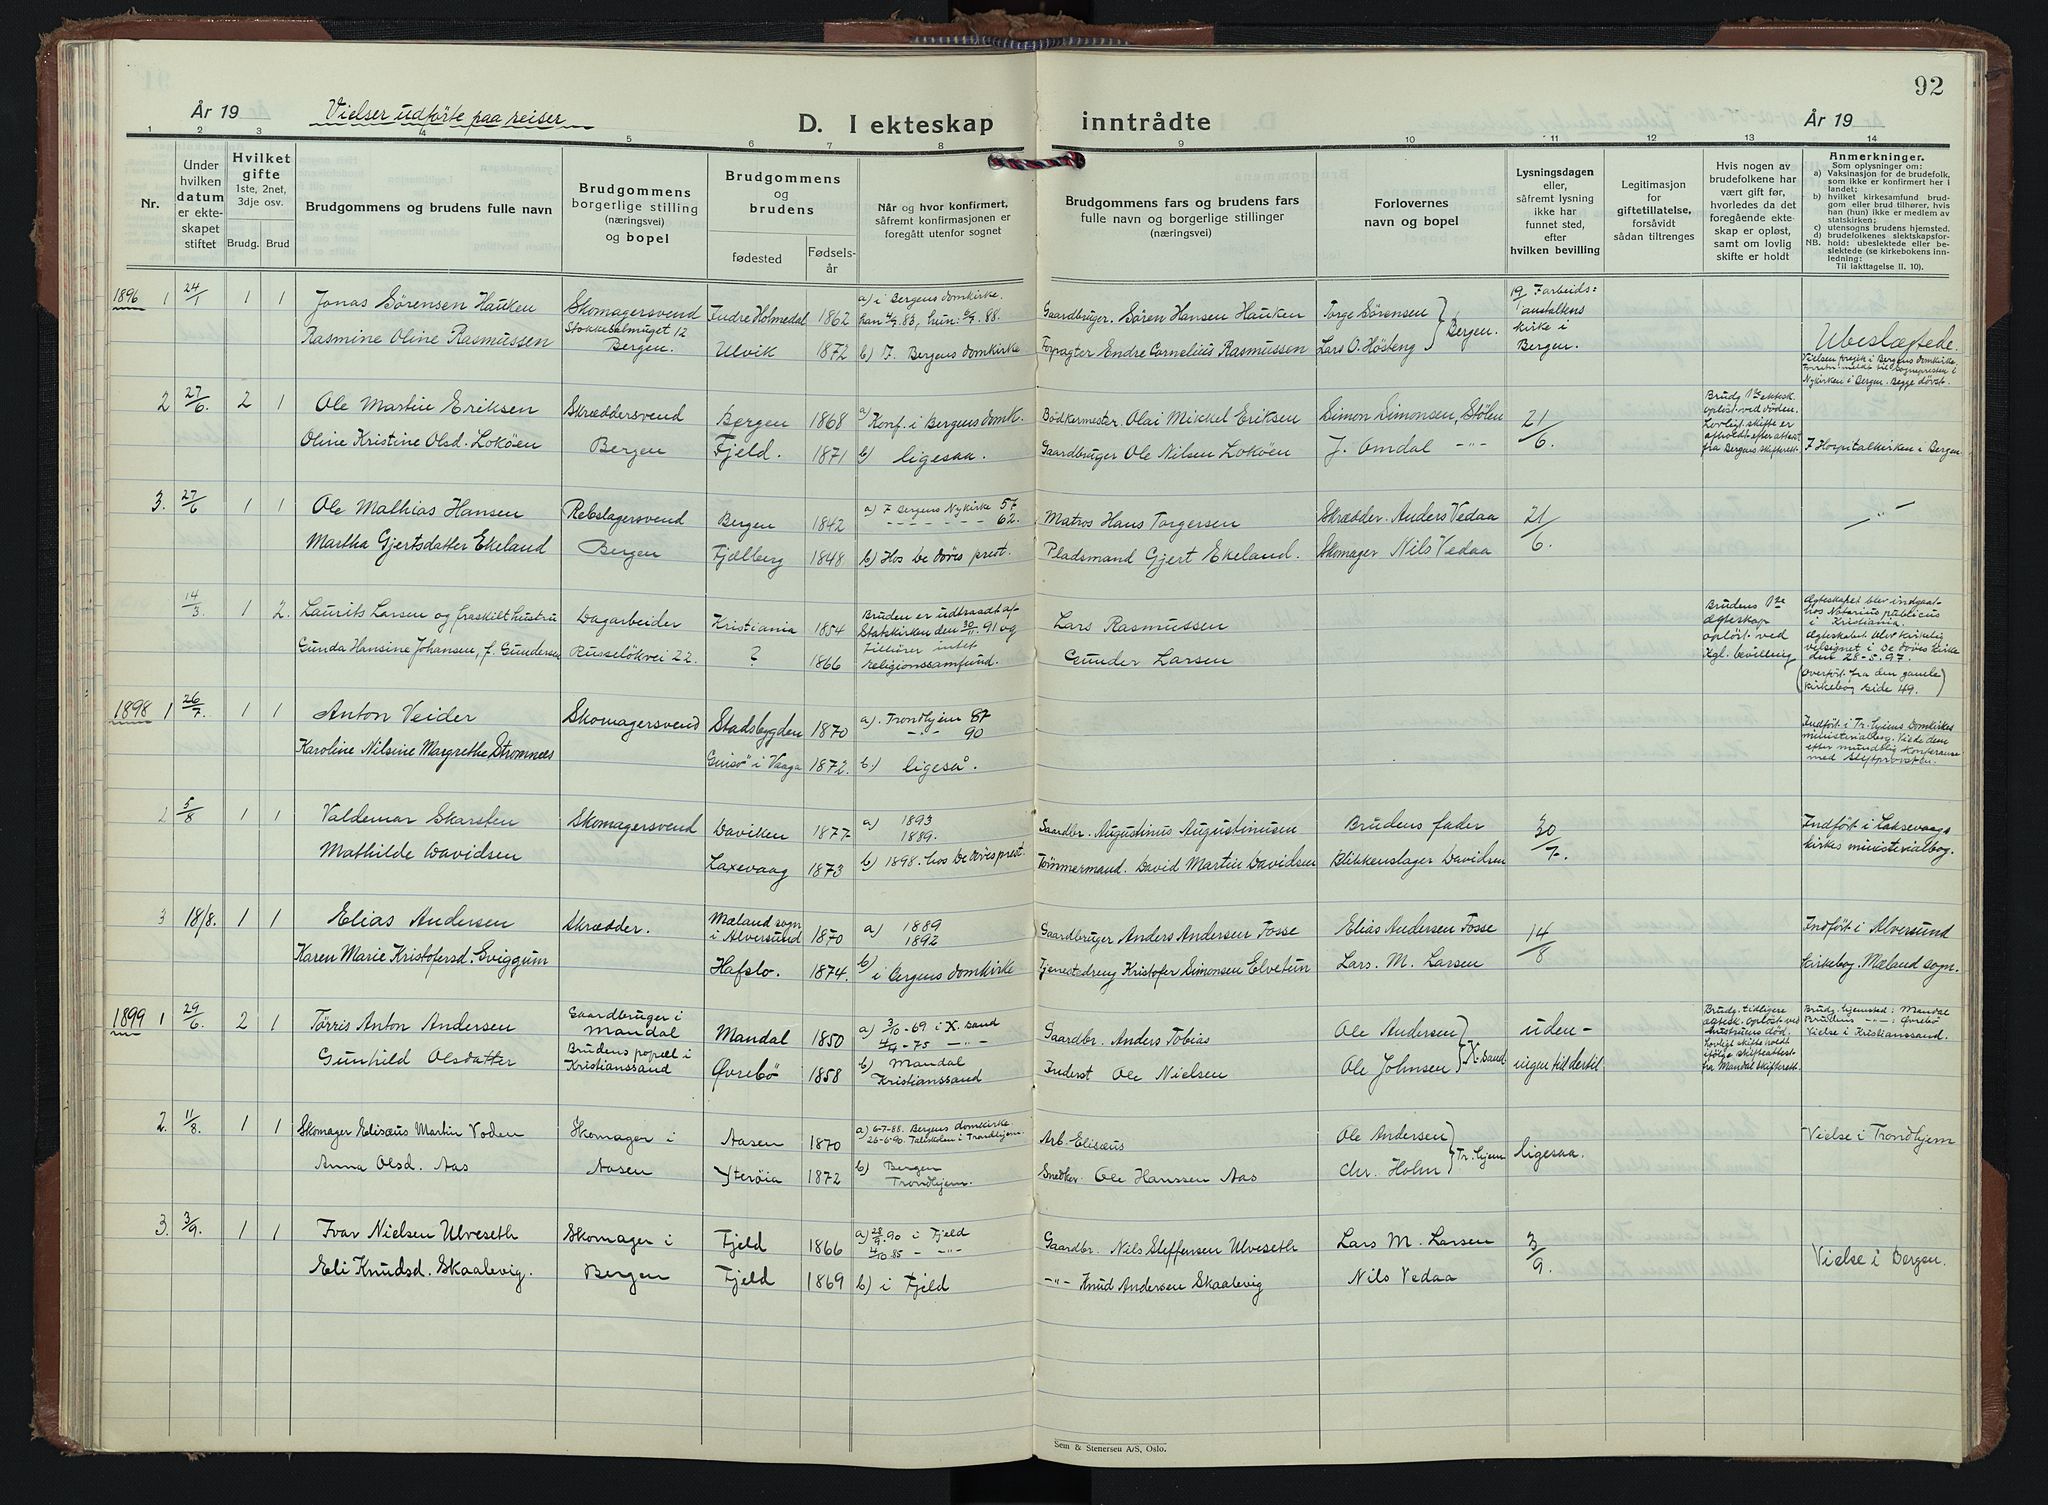 92
År 19
Vielser udførte paa reiser
D. I ekteskap inntrådte
År 19
1 2 3 4 5 6 7 8 9 10 11 12 13 14
Nr.
Under hvilken datum er ekteskapet stiftet
Hvilket gifte 1ste, 2net, 3dje osv.
Brudg. Brud
Brudgommens og brudens fulle navn
Brudgommens borgerlige stilling (næringsvei) og bopel
Brudgommens og brudens
fødested
Fødselsår
Når og hvor konfirmert, såfremt konfirmasjonen er foregått utenfor sognet
Brudgommens fars og brudens fars fulle navn og borgerlige stillinger (næringsvei)
Forlovernes navn og bopel
Lysningsdagen eller, såfremt lysning ikke har funnet sted, efter hvilken bevilling
Legitimasjon for giftetillatelse, forsåvidt sådan tiltrenges
Hvis nogen av brudefolkene har vært gift før, hvorledes da det foregående ekteskap er opløst, samt om lovlig skifte er holdt
Anmerkninger.
Som oplysninger om:
a) Vaksinasjon for de brudefolk, som ikke er konfirmert her i landet;
b) hvilket kirkesamfund brudgom eller brud tilhører, hvis han (hun) ikke er medlem av statskirken;
c) utensogns brudens hjemsted.
d) brudefolkenes slektskapsforhold: ubeslektede eller beslektede (se kirkebokens innledning:
NB.
Til iakttagelse II. 10).
1896 1 24/1 1 1 Jonas Sørensen Hauken Skomagersvend Indre Holmedal 1862 a) i Bergens domkirke. han 4/9. 83, hun. 88. Gaardbruger. Søren Hansen Hauken Torge Sørensen } Bergen. 19/1 Farbeidsanstaltens kirke i Bergen.
Rasmine Oline Rasmussen Bergen. Ulvik 1872 b) I. Bergens domkirke Forpagter Endre Cornelius Rasmussen Lars O. Høsteng Ubeslægtede.
Nykirken i Bergen. Begge døvst.
2 27/6. 2 1 Ole Martin Eriksen Skræddersvend Bergen 1868 a) Konf. i Bergens domk. Bødkermester. Olai Mickel Eriksen Simon Simonsen, Stølen 21/6 Brudg 1ste ektesk. opløst ved døden. Lovligt skifte er afholdt efter attest fra Bergens skifterett.
Oline Kristine Olsd. Lokøen Bergen Fjeld. 1871 b) ligesaa. Gaardbruger Ole Nilsen Lokøen J. Omdal -"- I Hospitalkirken i Bergen.
3. 27/6 1 1 Ole Mathias Hansen Rebslagersvend Bergen 1842 a) I Bergens Nykirke 57 - - - - - 62. Matros Hans Torgersen Skrædder. Anders Vedaa 21/6. -"-
Martha Gjertsdatter Ekeland Bergen Fjelberg 1848 b) Hos De døves prest. Pladsmand Gjert Ekeland. Skomager Nils Vedaa
14/3. 1 2. Laurits Larsen og fraskilt hustru Dagarbeider Kristiania 1854 Bruden er udtraadt af Statskirken den 30/11. 91 og tilhører intet religionssamfund. Lars Rasmussen Brudens 1ste Ægteskap opløst ved Kgl. bevilling Ægteskapet blev indgaat hos Notarius publicus i Kristiania. Ægteskabet blev kirkelig velsignet i De døves kirke den 28-5.97.
Gunda Hansine Johansen, f. Gundersen Russeløkvei 22. ? 1866 Gunder Larsen (Overført fra den gamle kirkebog side 49.)
1898 1 26/7. 1 1 Anton Veider Skomagersvend Stadsbygden 1870 a). Trondhjem 87 -"- 90 Indført i Tr.hjems Domkirkes ministerialbog. Viede dem efter mundtlig konferanse med stiftprovsten.
Karoline Nilsine Margrethe Strømnæs Gimsø i Vaaga 1872. b.) ligeså.
2 5/8 1 1 Valdemar Skarsten Skomagersvend Daviken 1877 a) 1893 1889. Gaardbr. Augustinus Augustinusen Brudens fader 30/7. Indført i Laksevaags kirkes ministerialbog.
Mathilde Davidsen Laxevaag 1873 b) 1898. hos De Døves prest. Tømmermand. David Martin Davidsen Blikkenslager Davidsen
3 18/8. 1 1 Elias Andersen Skrædder. Mæland sogn i Alversund 1870 a) 1889 1892 Gaardbruger Anders Andersen Fosse Elias Andersen Fosse 14/8 Indført i Alversund
Karen Marie Kristofersd. Gviggum Hafslo. 1874. b) i Bergens domkirke Tjenestedreng Kristofer Simonsen Elvetun Lars. M. Larsen kirkebog. Mæland sogn.
1899 1 29/6. 2 1 Tørris Anton Andersen Gaardbruger i Mandal Mandal 1850 a) 3/10-69 i X.sand 4/4-75 -"- Gaardbr. Anders Tobias Ole Andersen } X.sand uden- Brudg. tidligere ægtesk. opløst ved hustruens død. Lovligt skifte holdt ifølge skifteattest fra Mandal skifterett. Brudg. hjemsted: Mandal Brudens -"- : Øvrebø Vielse i Kristianssand.
Gunhild Olsdatter Brudens bopæl i Kristianssand Øvrebø 1858 b) Mandal Kristianssand Inderst Ole Nielsen Ole Johnsen ingen tid dertil
2. 11/8. 1 1 Skomager Elisæus Martin Voden Skomager i Aasen 1870 a) 6-7-88. Bergens domkirke 26-6-90. Taleskolen i Trondhjem. Arb. Elisæus Ole Andersen } Tr.hjem ligesaa. Vielse i Trondhjem
Anna Olsd. Aas Aasen Yterøia 1872 b) Bergen Trondhjem. Snedker. Ole Hanssen Aas Chr. Holm
3. 3/9. 1 1 Ivar Nielsen Ulveseth Skomager i Fjeld 1866 a) 28/9.90 i Fjeld 4/10 85 - -"- Gaardbr. Nils Steffensen Ulveseth Lars M. Larsen 3/9. Vielse i Bergen.
Eli Knudsd. Skaalevig. Bergen Fjeld 1869 b) i Fjeld -"- Knud Andersen Skaalevig Nils Vedaa
Sem & Stenersen A/S, Oslo.